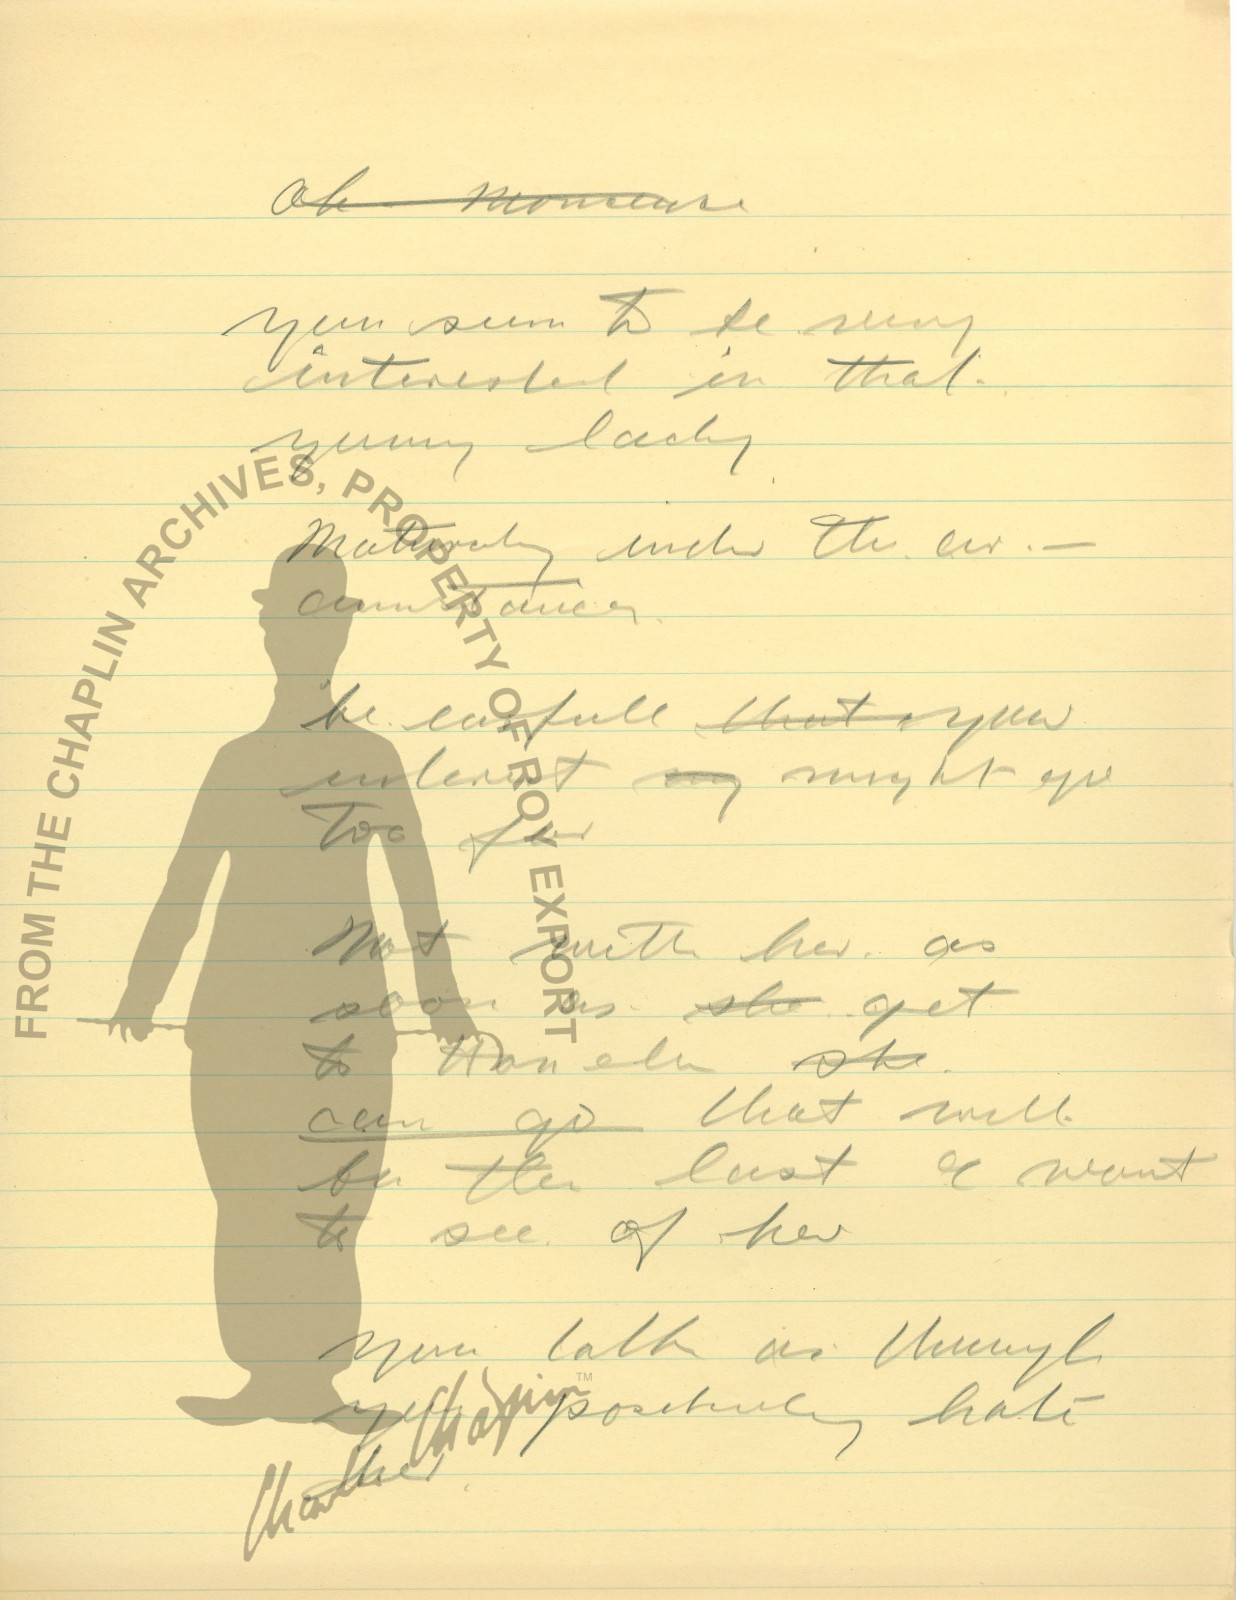 Oh nonsense
you seem to be very
interested in that
young lady
Naturaly under the cir.—
cumstances.
be carfull that your
interest my might go
too far
Not with her. as
soon as she get
to she.
can go that will
be the last I want
to see of her
you talk as though
you positively hate
her
FROM THE CHAPLIN ARCHIVES, PROPERTY OF ROY EXPORT
Charlie Chaplin™